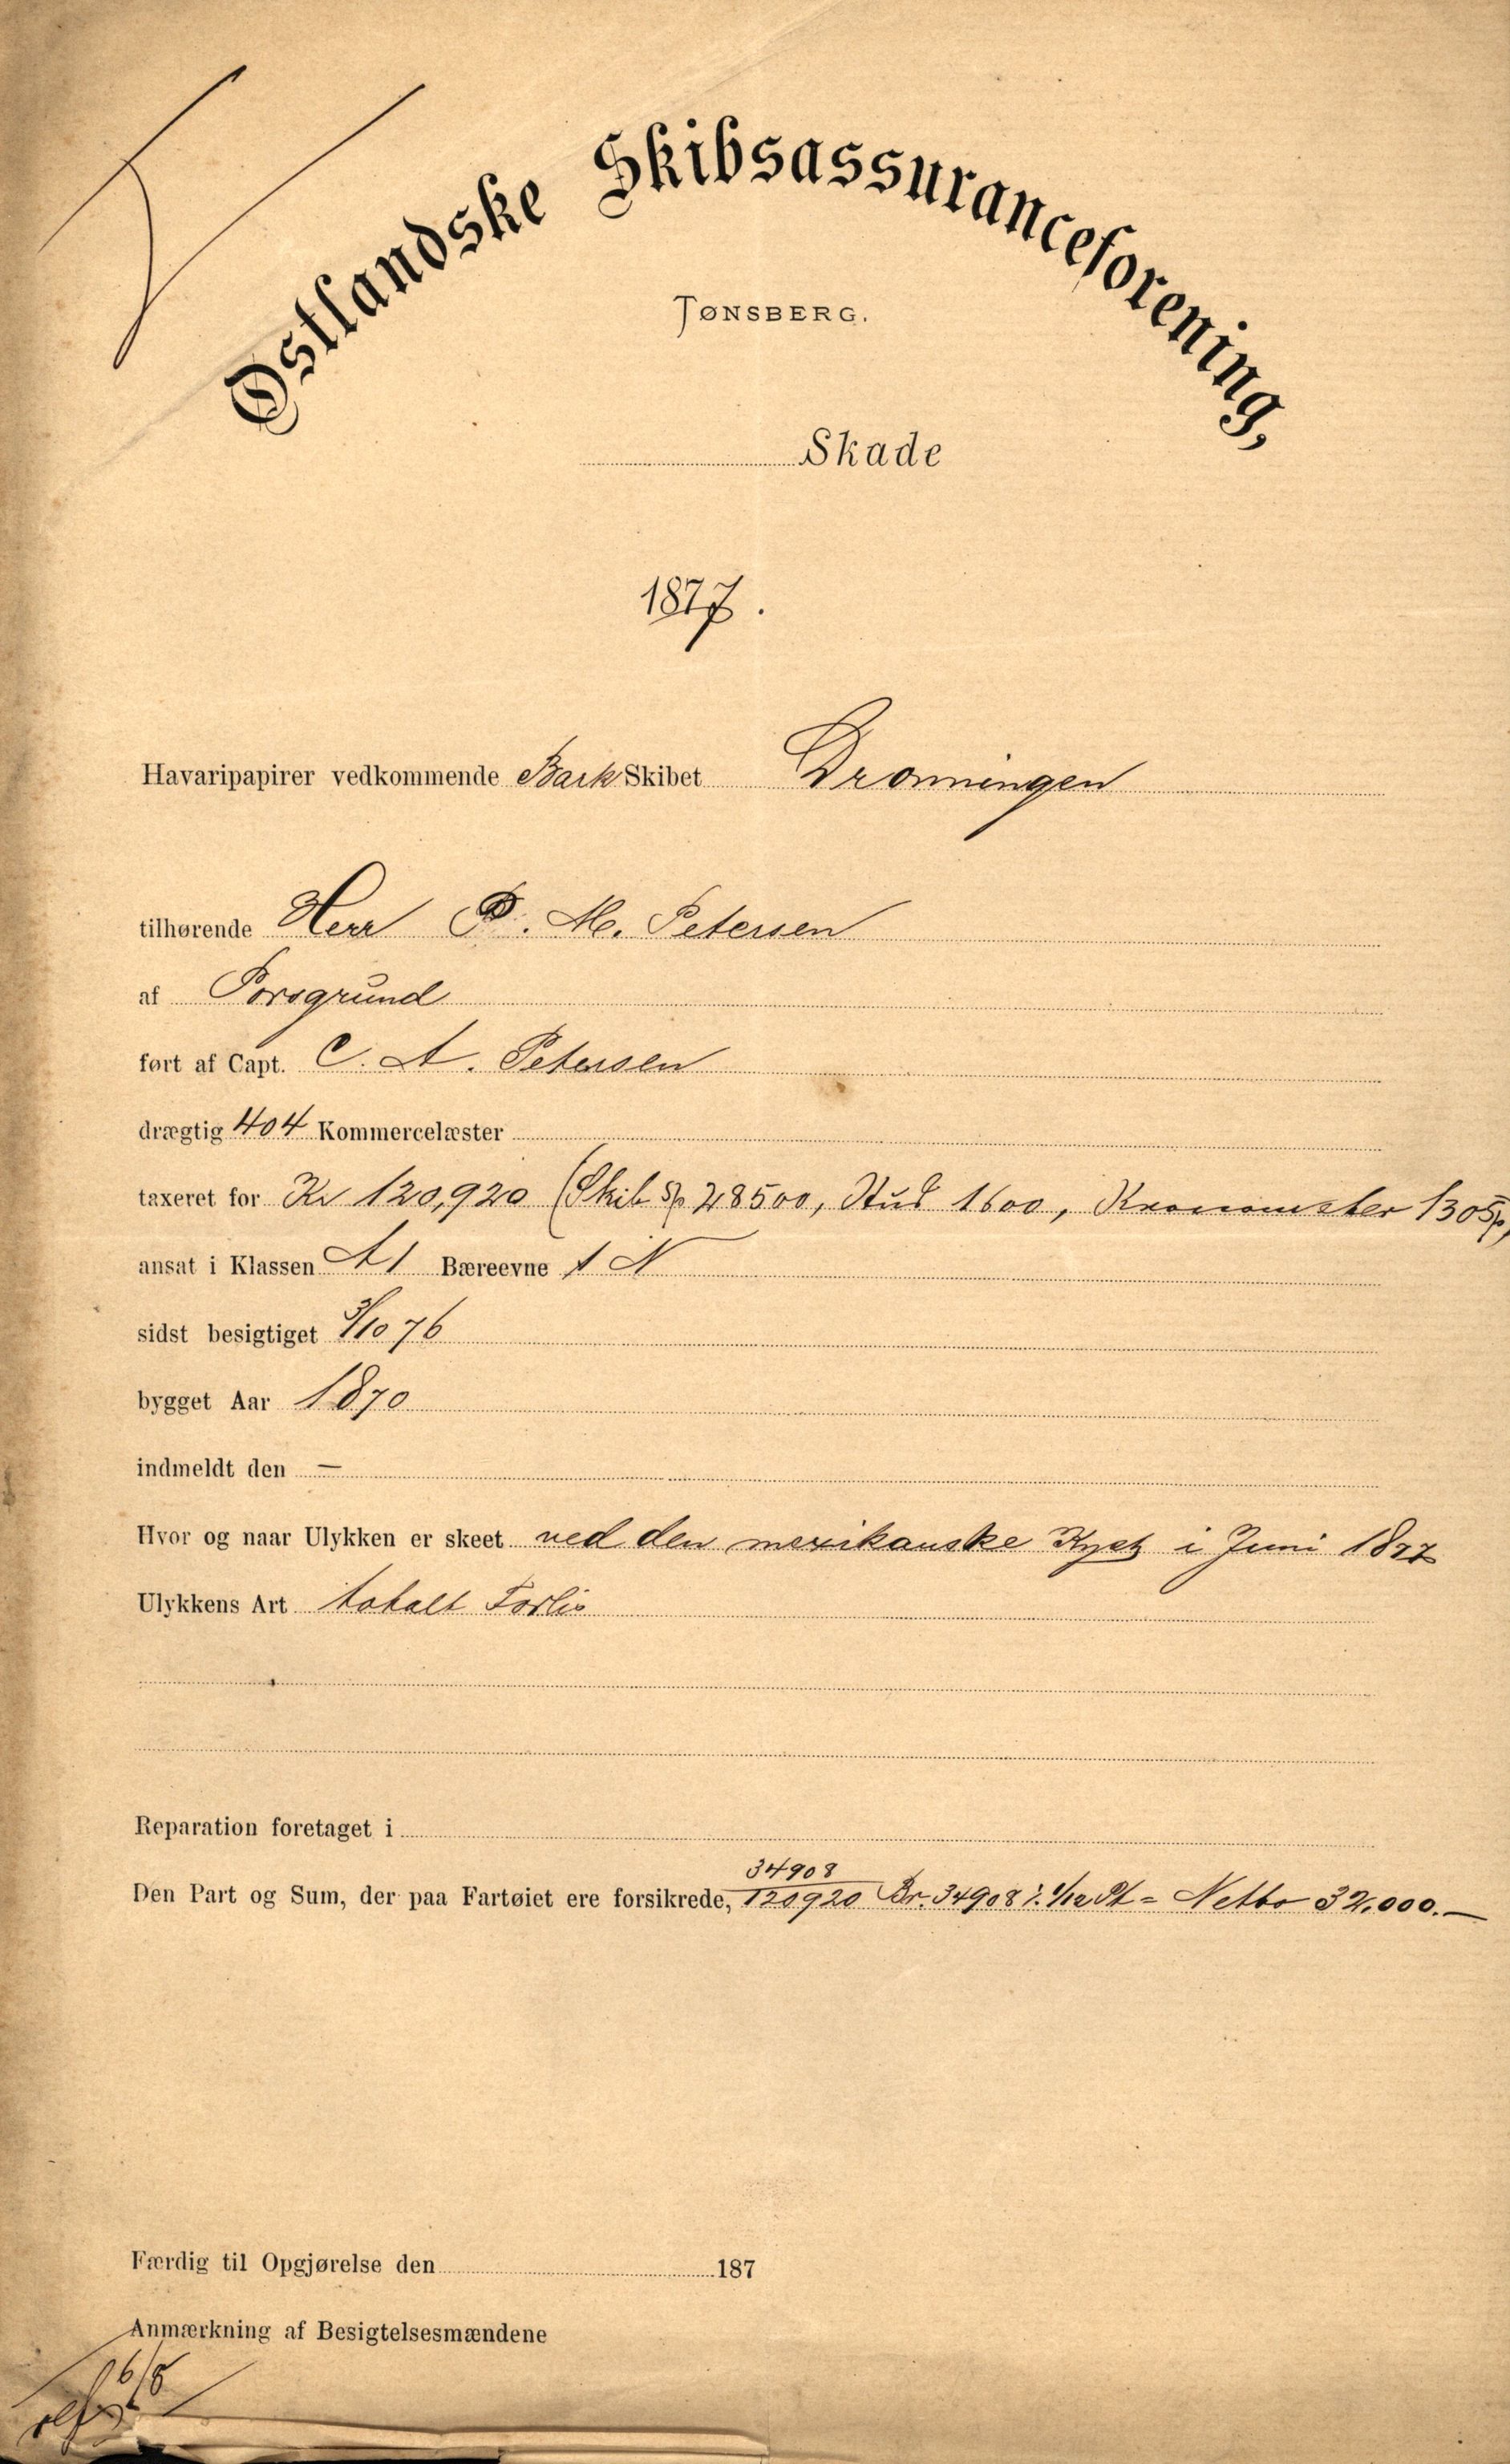 Østlandske Skibsassuranceforening,
TØNSBERG.
Skade
1877.
Havaripapirer vedkommende Bark Skibet Dronningen
tilhørende Herr P. M. Petersen
af Porsgrund
ført af Capt. C. A. Petersen
drægtig 404 Kommercelæster
taxeret for Kr 120,920 (Skib Sp 28500, Hud 1600, Kronometer 130 Sp)
ansat i Klassen A1 Bæreevne 1 N
sidst besigtiget 3/10 76
bygget Aar 1870
indmeldt den —
Hvor og naar Ulykken er skeet ved den mexikanske Kyst i Juni 1877
Ulykkens Art totalt Forlis
Reparation foretaget i
Den Part og Sum, der paa Fartøiet ere forsikrede, 34908/120920 Br. 34908 ÷ 1/12 Pt = Netto 32,000.—
Færdig til Opgjørelse den 187
Anmærkning af Besigtelsesmændene
16/8